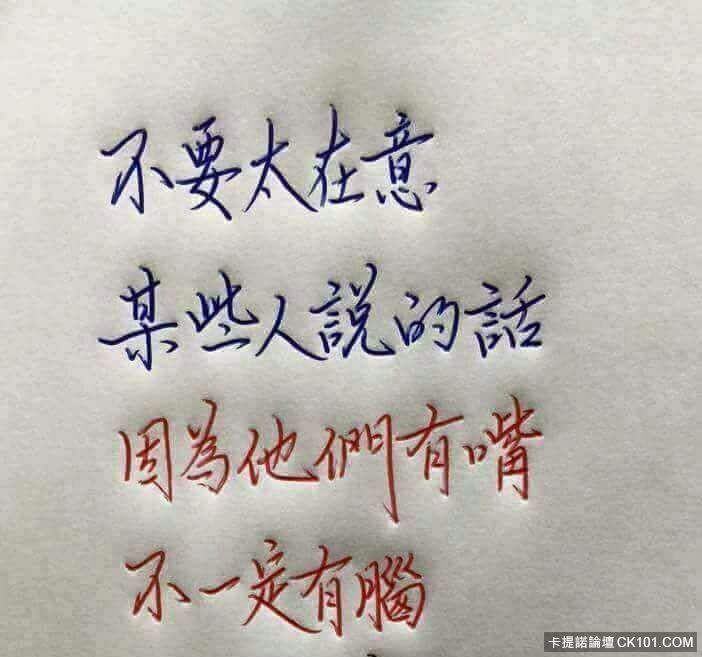 不要太在意
某些人說的話
因為他們有嘴
不一定有腦
卡提諾論壇 CK101.COM